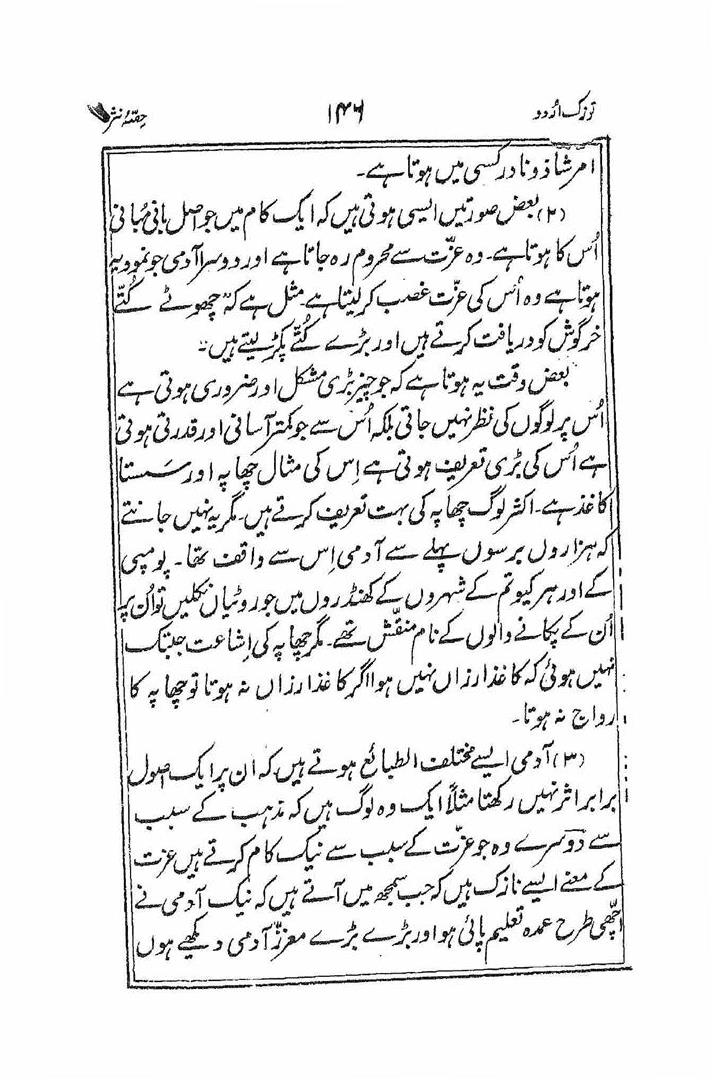 تزک اُردو ۱۴۶ حصّۂ نثر
امر شاذ و نادر کسی میں ہوتا ہے۔
(۲) بعض صورتیں ایسی ہوتی ہیں کہ ایک کام میں جو اصل بانی مُبانی
اُس کا ہوتا ہے۔ وہ عزّت سے محروم رہ جاتا ہے اور دوسرا آدمی جو نمودیہ
ہوتا ہے وہ اُس کی عزّت غصب کر لیتا ہے مثل ہے کہ "چھوٹے کُتّے
خرگوش کو دریافت کرتے ہیں اور بڑے کُتّے پکڑ لیتے ہیں"۔
بعض وقت یہ ہوتا ہے کہ جو چیز بڑی مشکل اور ضروری ہوتی ہے
اُس پر لوگوں کی نظر نہیں جاتی بلکہ اُس سے جو کمتر آسانی اور قدرتی ہوتی
ہے اُس کی بڑی تعریف ہوتی ہے اِس کی مثال چھاپہ اور سَستا
کاغذ ہے۔ اکثر لوگ چھاپہ کی بہت تعریف کرتے ہیں۔ مگر یہ نہیں جانتے
کہ ہزاروں برسوں پہلے سے آدمی اِس سے واقف تھا۔ پومپی
کے اور ہرکیوتم کے شہروں کے کھنڈروں میں جو روٹیاں نکلیں تو اُن پر
اُن کے پکانے والوں کے نام منقّش تھے۔ مگر چھاپہ کی اِشاعت جبتک
نہیں ہوئی کہ کاغذ ارزاں نہیں ہوا اگر کاغذ ارزاں نہ ہوتا تو چھاپہ کا
رواج نہ ہوتا۔
(۳) آدمی ایسے مختلف الطبائع ہوتے ہیں کہ ان پر ایک اصول
برابر اثر نہیں رکھتا مثلاً ایک وہ لوگ ہیں کہ مذہب کے سبب
سے دوسرے وہ جو عزّت کے سبب سے نیک کام کرتے ہیں عزت
کے معنے ایسے نازک ہیں کہ جب سمجھ میں آتے ہیں کہ نیک آدمی نے
اچّھی طرح عمدہ تعلیم پائی ہو اور بڑے بڑے معزّز آدمی دیکھے ہوں